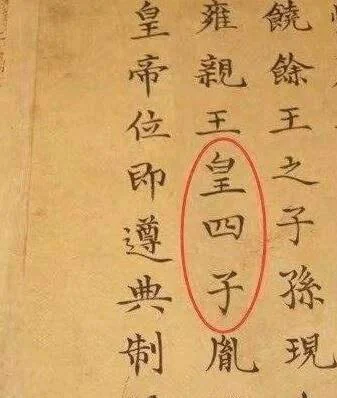 饒餘王之子孫現
雍親王皇四子胤
皇帝位即遵典制